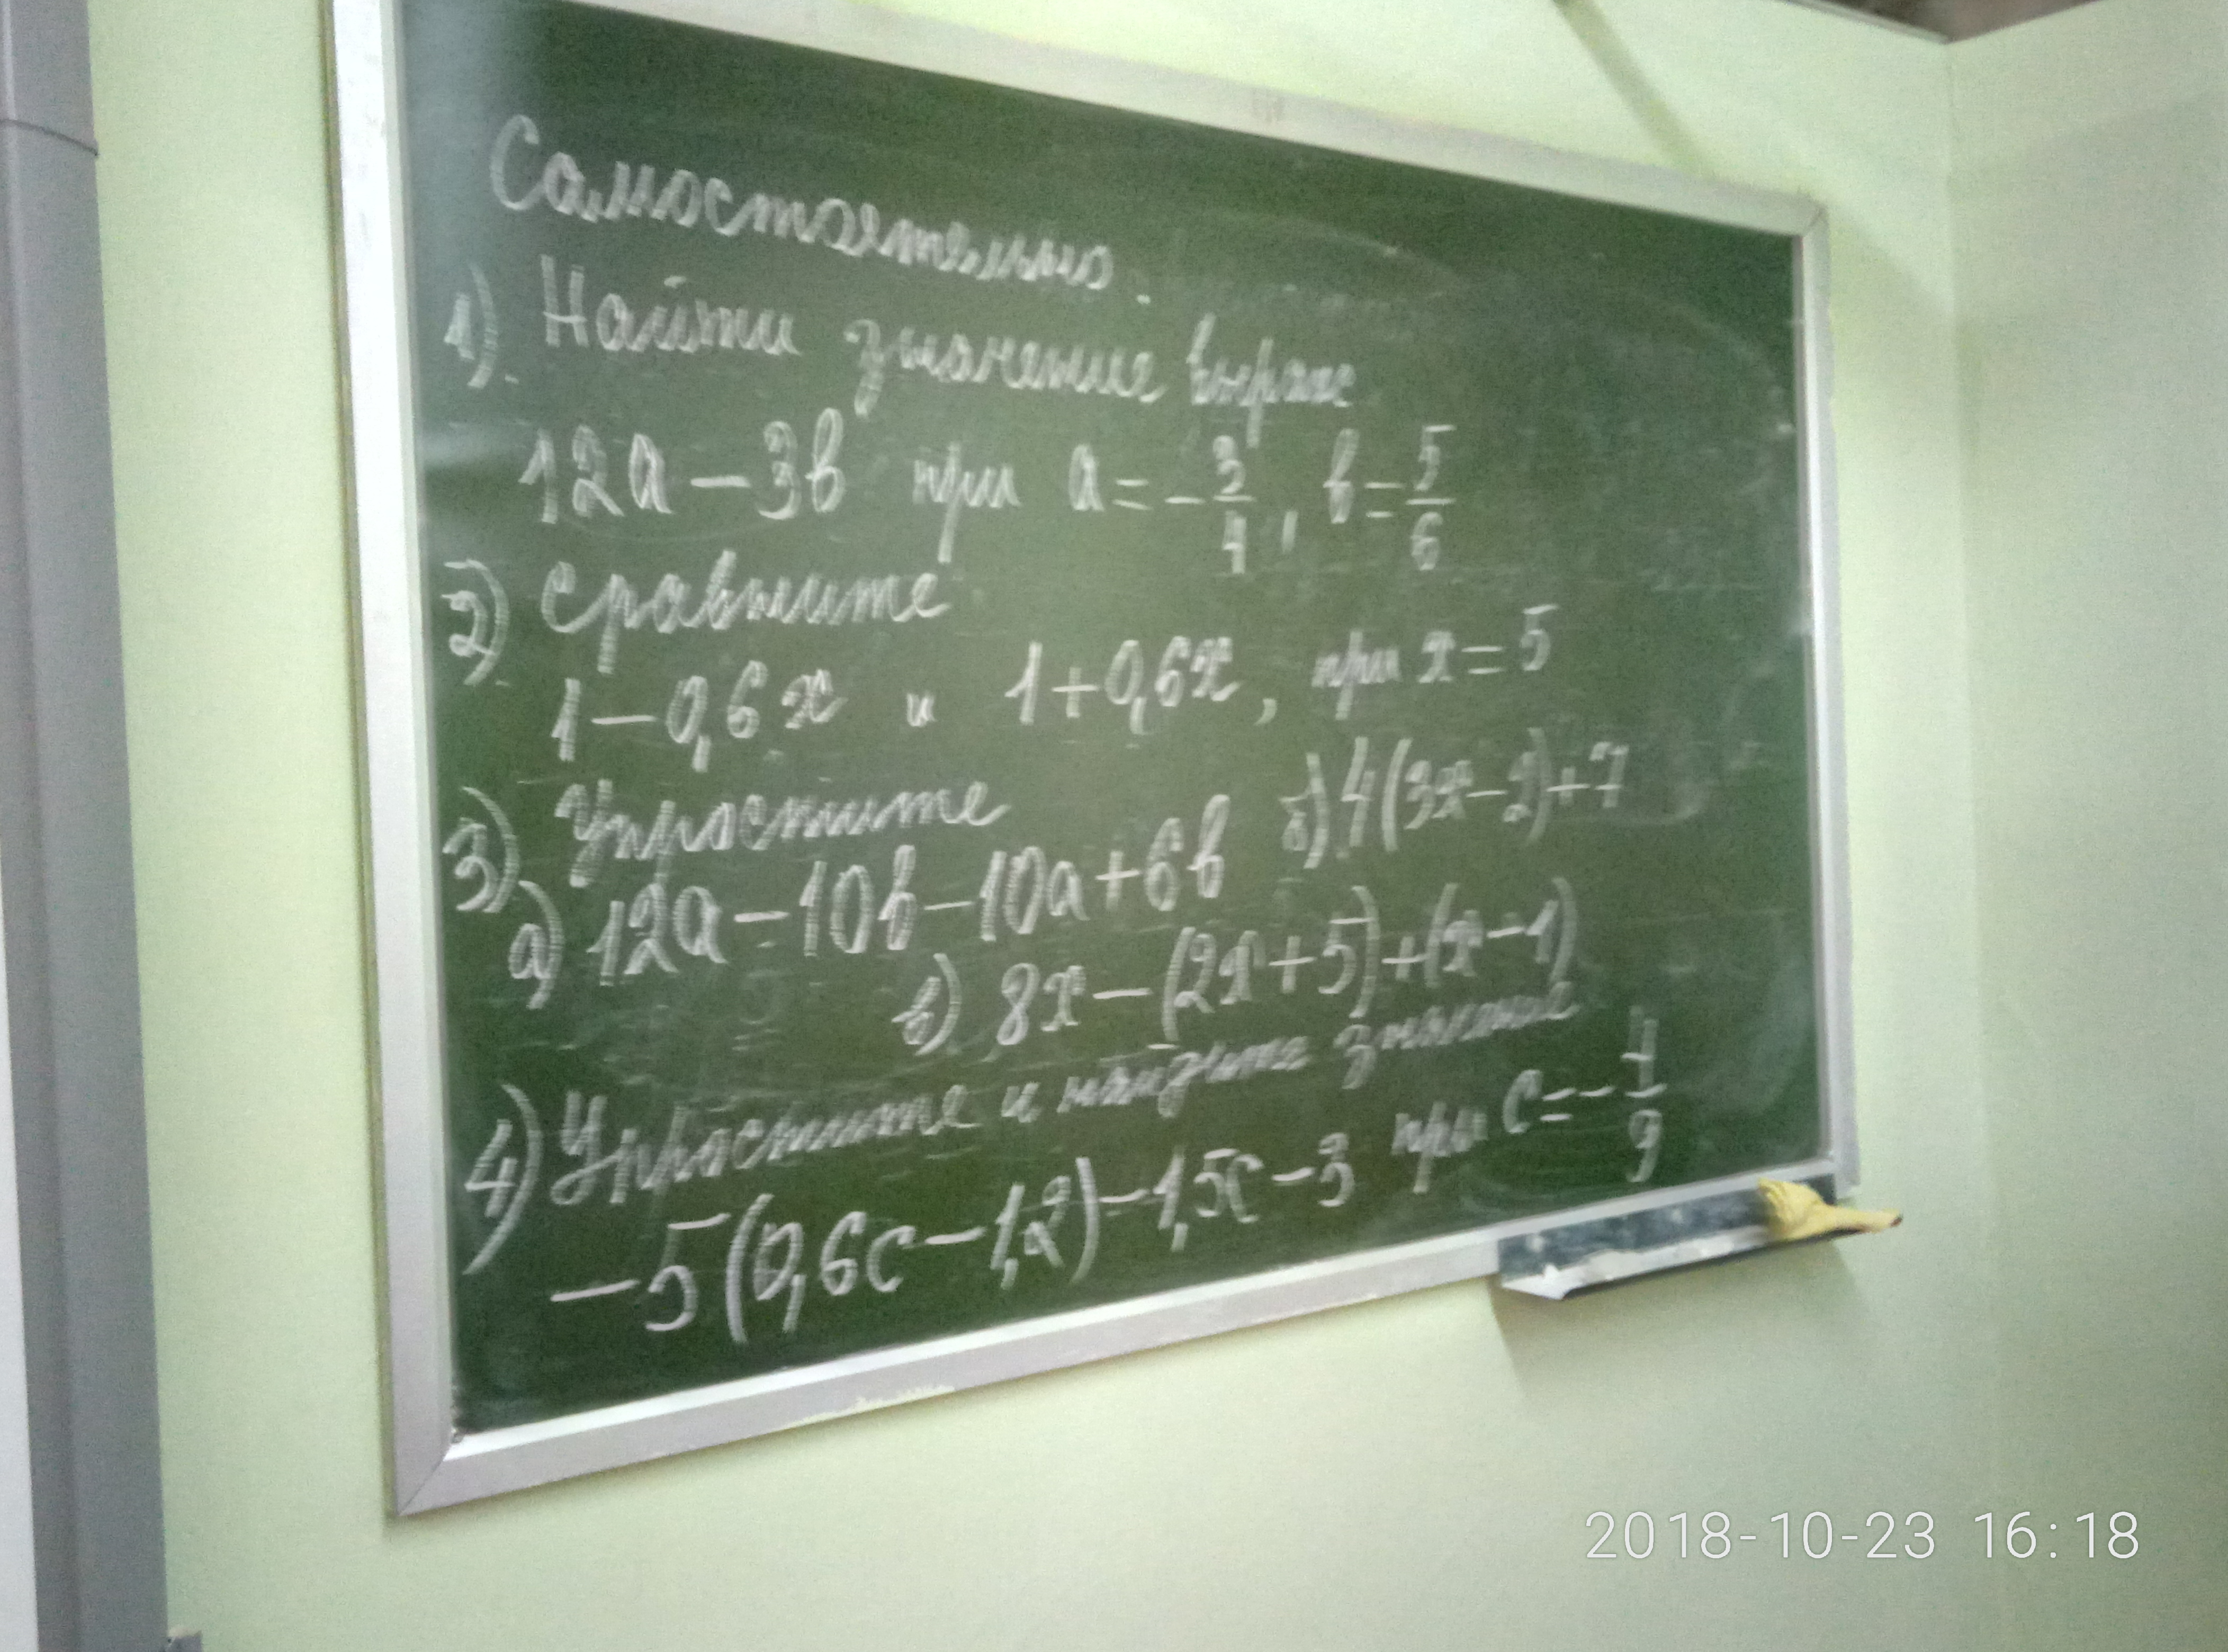 Самостоятельно.
1). Найти значение выраж
12a - 3b при a = - 3/4, b = 5/6
2) Сравните
1 - 0,6x и 1 + 0,6x, при x = 5
3) Упростите
а) 12a - 10b - 10a + 6b б) 4(3x - 2) + 7
в) 8x - (2x + 5) + (x - 1)
4) Упростите и найдите значение
-5(0,6c - 1,2) - 1,5c - 3 при c = - 4/9
2018-10-23 16:18